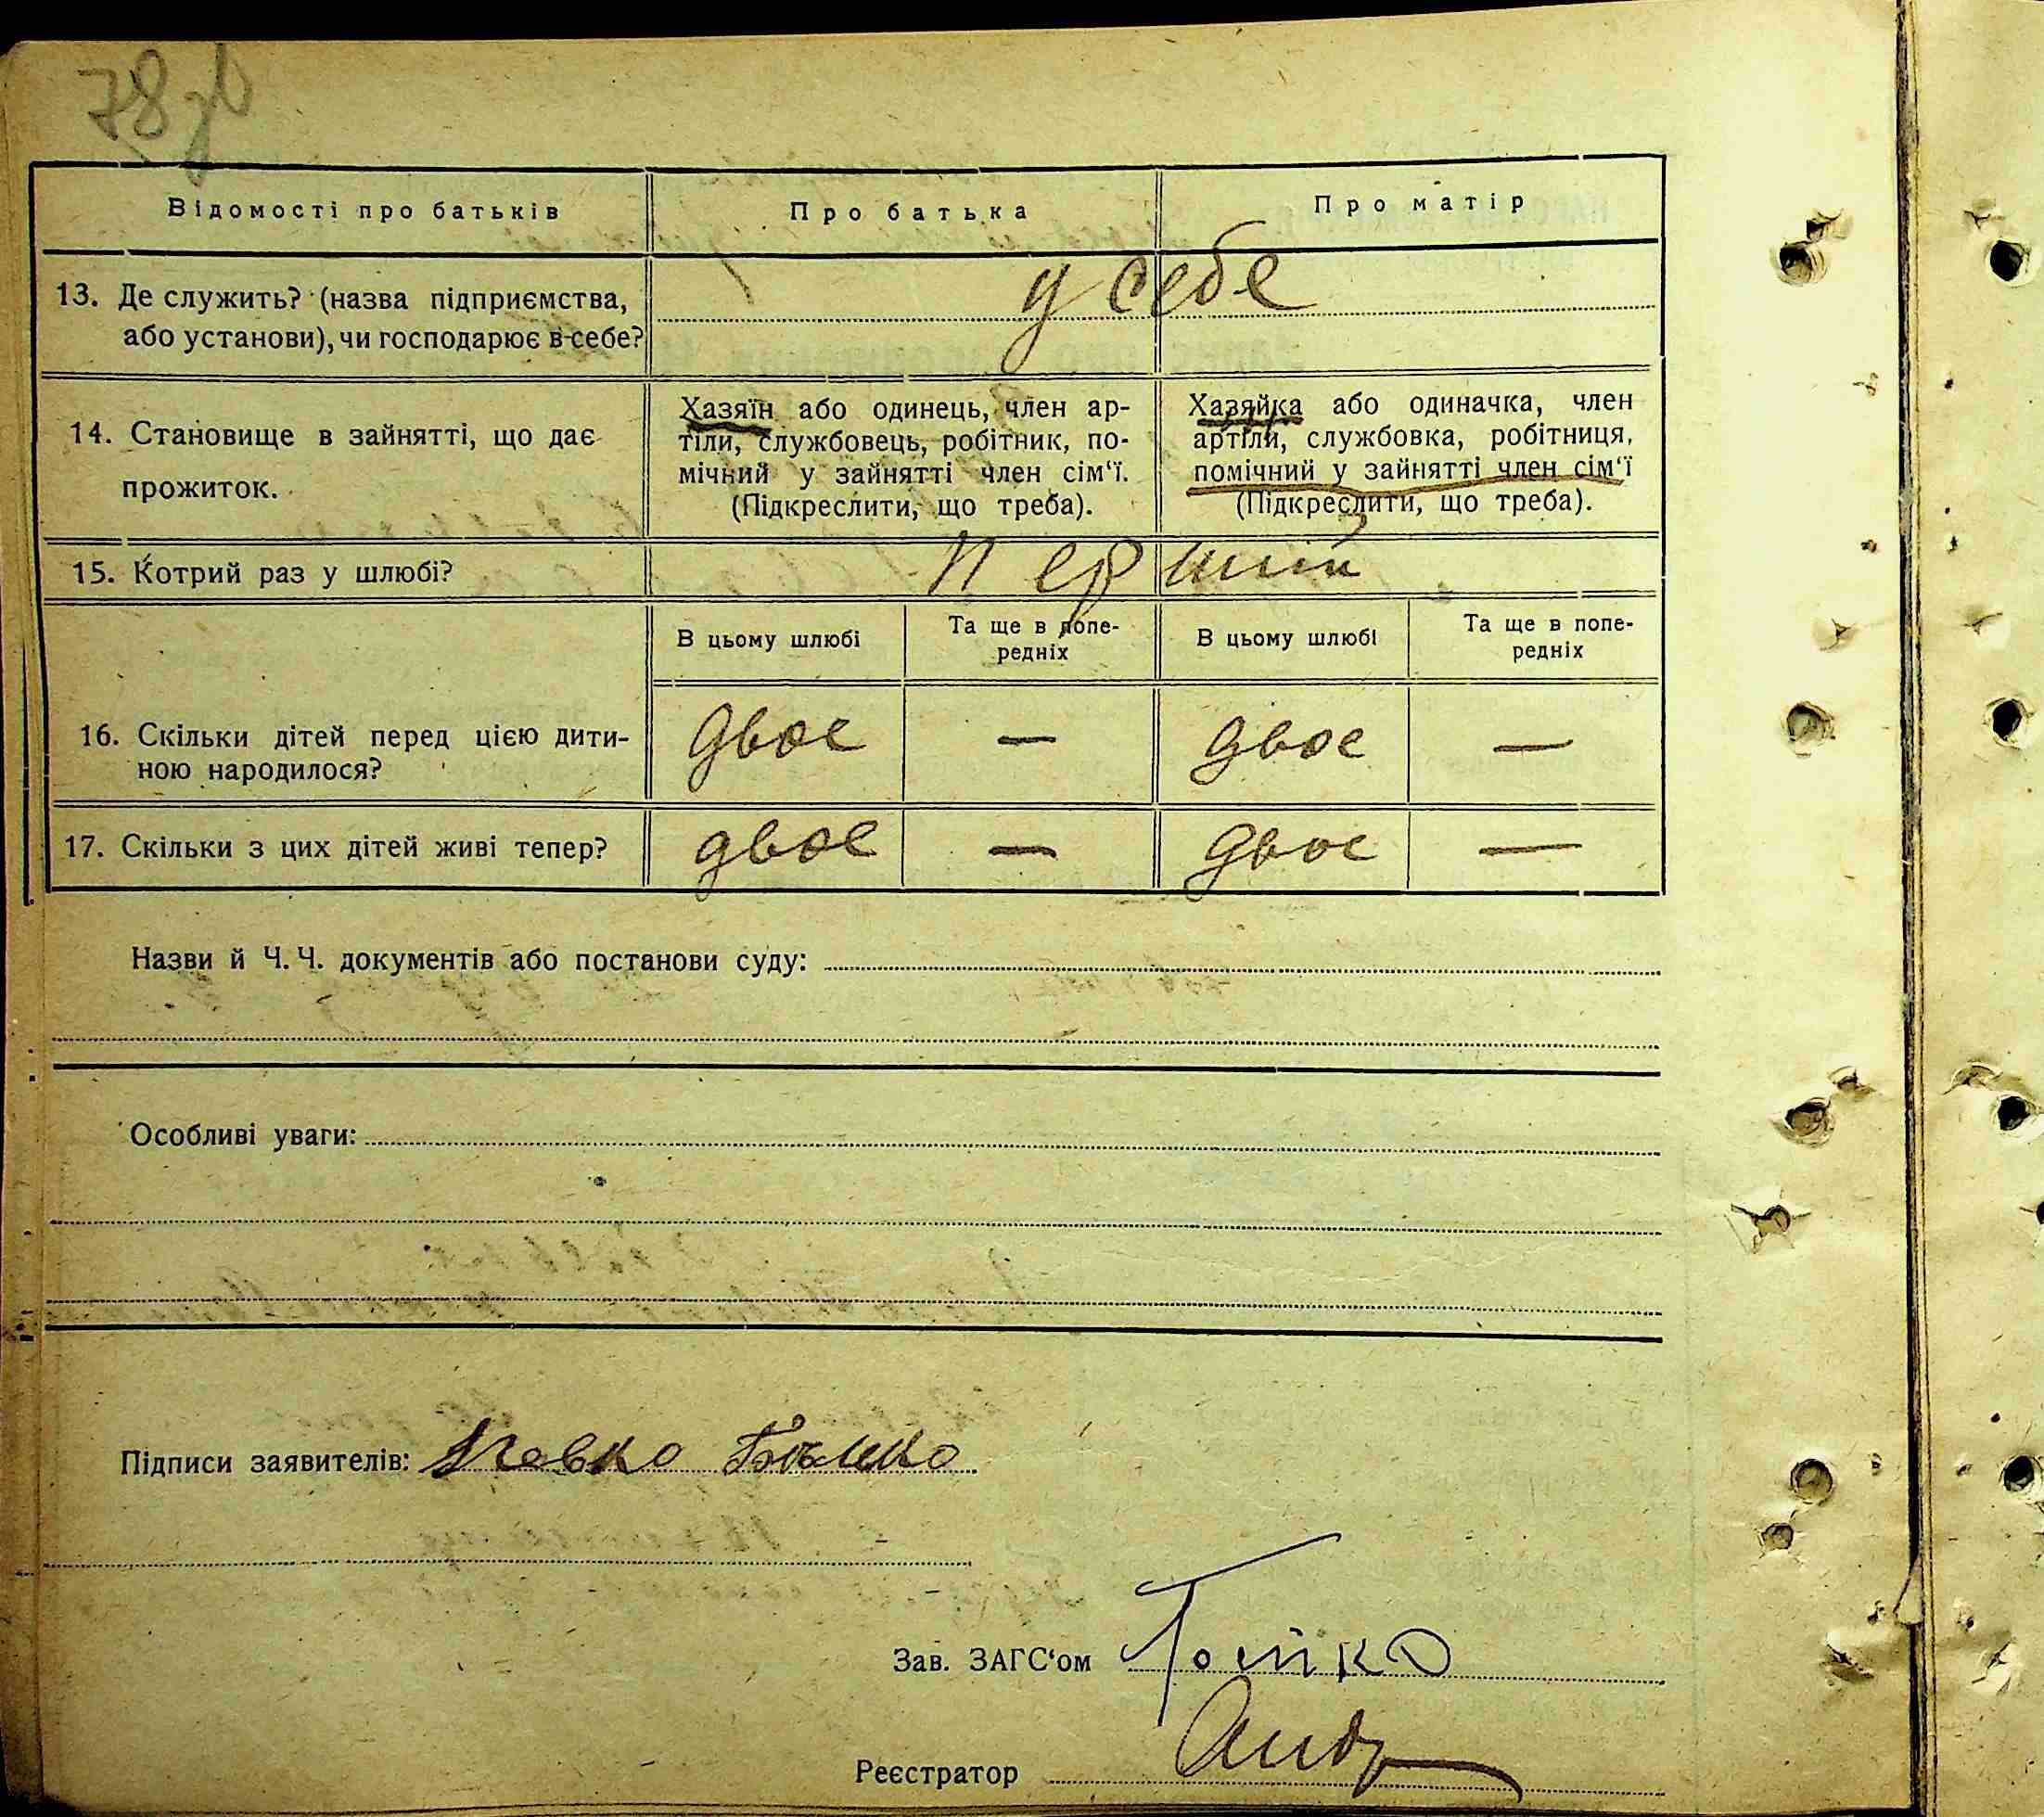 78 зв
Відомості про батьків
Про батька
Про матір
13. Де служить? (назва підприємства,
або установи), чи господарює в себе?
у себе
14. Становище в зайнятті, що дає
прожиток.
Хазяїн або одинець, член ар-
тіли, службовець, робітник, по-
мічний у зайнятті член сім‘ї.
(Підкреслити, що треба).
Хазяйка або одиначка, член
артіли, службовка, робітниця,
помічний у зайнятті член сім‘ї
(Підкреслити, що треба).
15. Котрий раз у шлюбі?
перший
В цьому шлюбі
Та ще в попе-
редніх
В цьому шлюбі
Та ще в попе-
редніх
16. Скільки дітей перед цією дити-
ною народилося?
двоє — двоє —
17. Скільки з цих дітей живі тепер? двоє — двоє —
Назви й Ч. Ч. документів або постанови суду:
Особливі уваги:
Підписи заявителів:
Зав. ЗАГС‘ом
Реєстратор